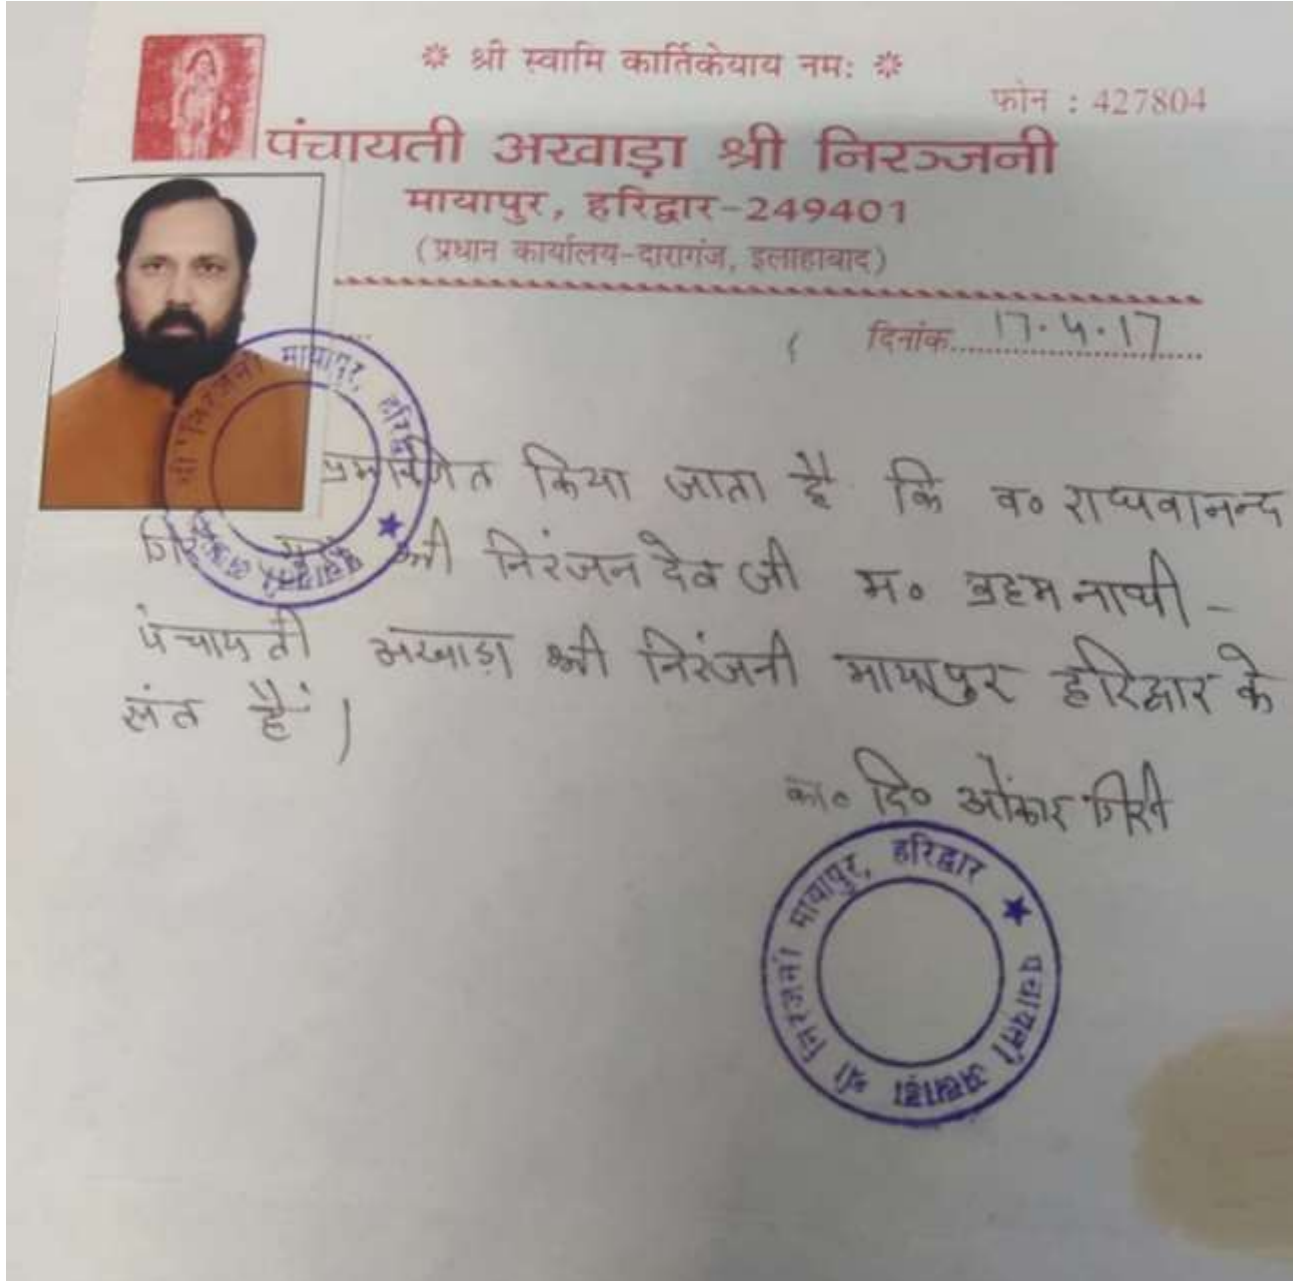 ❋ श्री स्वामि कार्तिकेयाय नमः ❋
फोन : 427804
पंचायती अखाड़ा श्री निरञ्जनी
मायापुर, हरिद्वार-249401
(प्रधान कार्यालय-दारागंज, इलाहाबाद)
दिनांक 17.4.17
प्रमाणित किया जाता है कि व० राघवानन्द
श्री निरंजन देव जी म० ब्रहम नाथी -
पंचायती अखाड़ा श्री निरंजनी मायापुर हरिद्वार के
संत हैं।
का० दि० ओंकार गिरी
पंचायती अखाड़ा श्री निरंजनी मायापुर, हरिद्वार ★
पंचायती अखाड़ा श्री निरंजनी मायापुर, हरिद्वार ★